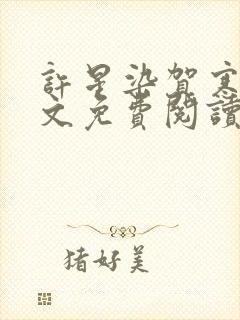 許星染賀寒
文免費閱讀
猪好美